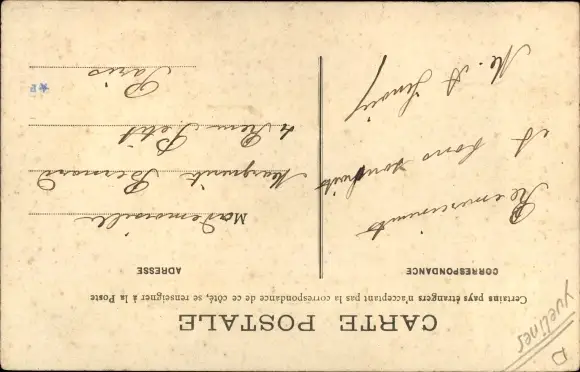 CARTE POSTALE
Certains pays étrangers n'acceptant pas la correspondance de ce côté, se renseigner à la Poste
CORRESPONDANCE
Remerciments
et bons souhaits
Me. A
ADRESSE
Mademoiselle
Marguerite Bernard
4 Petit
Paris
yvelines
D